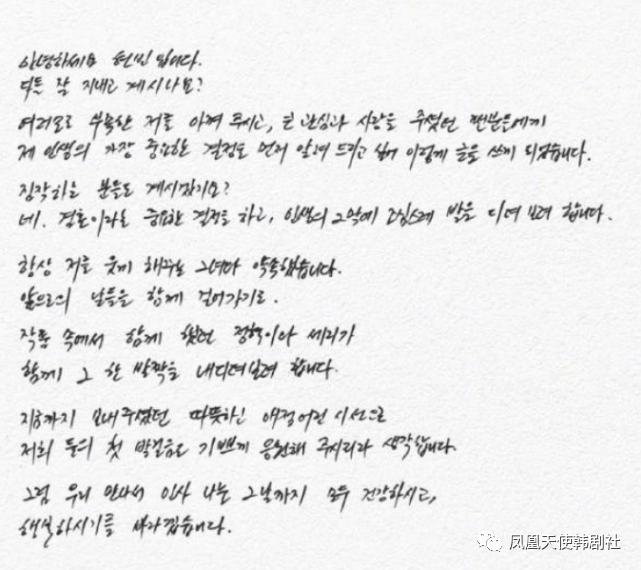 안녕하세요 현빈 입니다.
다들 잘 지내고 계시나요?
여러모로 부족한 저를 아껴 주시고, 큰 관심과 사랑을 주셨던 팬분들에게
제 인생의 가장 중요한 결정을 먼저 알려 드리고 싶어 이렇게 글을 쓰게 되었습니다.
짐작하실 분들도 계시겠지요?
네. 결혼이라는 중요한 결정을 하고, 인생의 2막에 조심스레 발을 디뎌 보려 합니다.
항상 저를 웃게 해주는 그녀와 약속했습니다.
앞으로의 날들을 함께 걸어가기로.
작품 속에서 함께 했던 정혁이와 세리가
함께 그 한 발짝을 내디뎌보려 합니다.
지금까지 보내주셨던 따뜻하신 애정어린 시선으로
저희 둘의 첫 발걸음을 기쁘게 응원해 주시리라 생각합니다.
그럼 우리 만나서 인사 나눌 그날까지 모두 건강하시고,
행복하시기를 바라겠습니다.
凤凰天使韩剧社